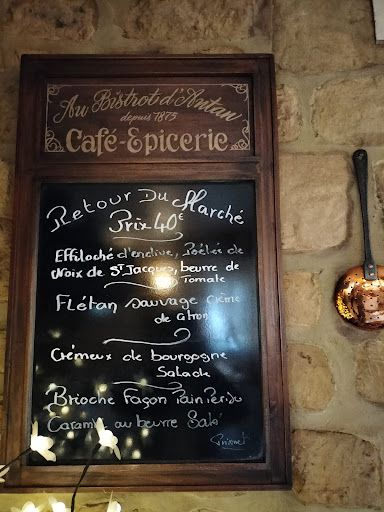 Au Bistrot d'Antan
depuis 1875
Café-Epicerie
Retour Du Marché
Prix 40€
Effiloché d'endive, Poêlée de
Noix de St Jacques, beurre de
Tomate
Flétan sauvage crème
de citron
Crémeux de bourgogne
Salade
Brioche Façon Pain Perdu
Caramel au beurre Salé